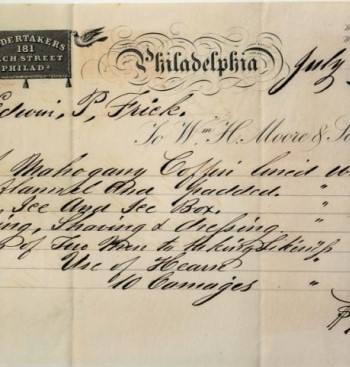 DERTAKERS
181
CH STREET
PHILADA
Philadelphia July
Edwin. P. Frick.
To Wm. H. Moore & So
Mahogany Coffin lined w
Flannel And padded. "
Ice And Ice Box. "
ing, Shaving & dressing "
of Two Men to taking Likeness
Use of Hearse "
10 Carriages "